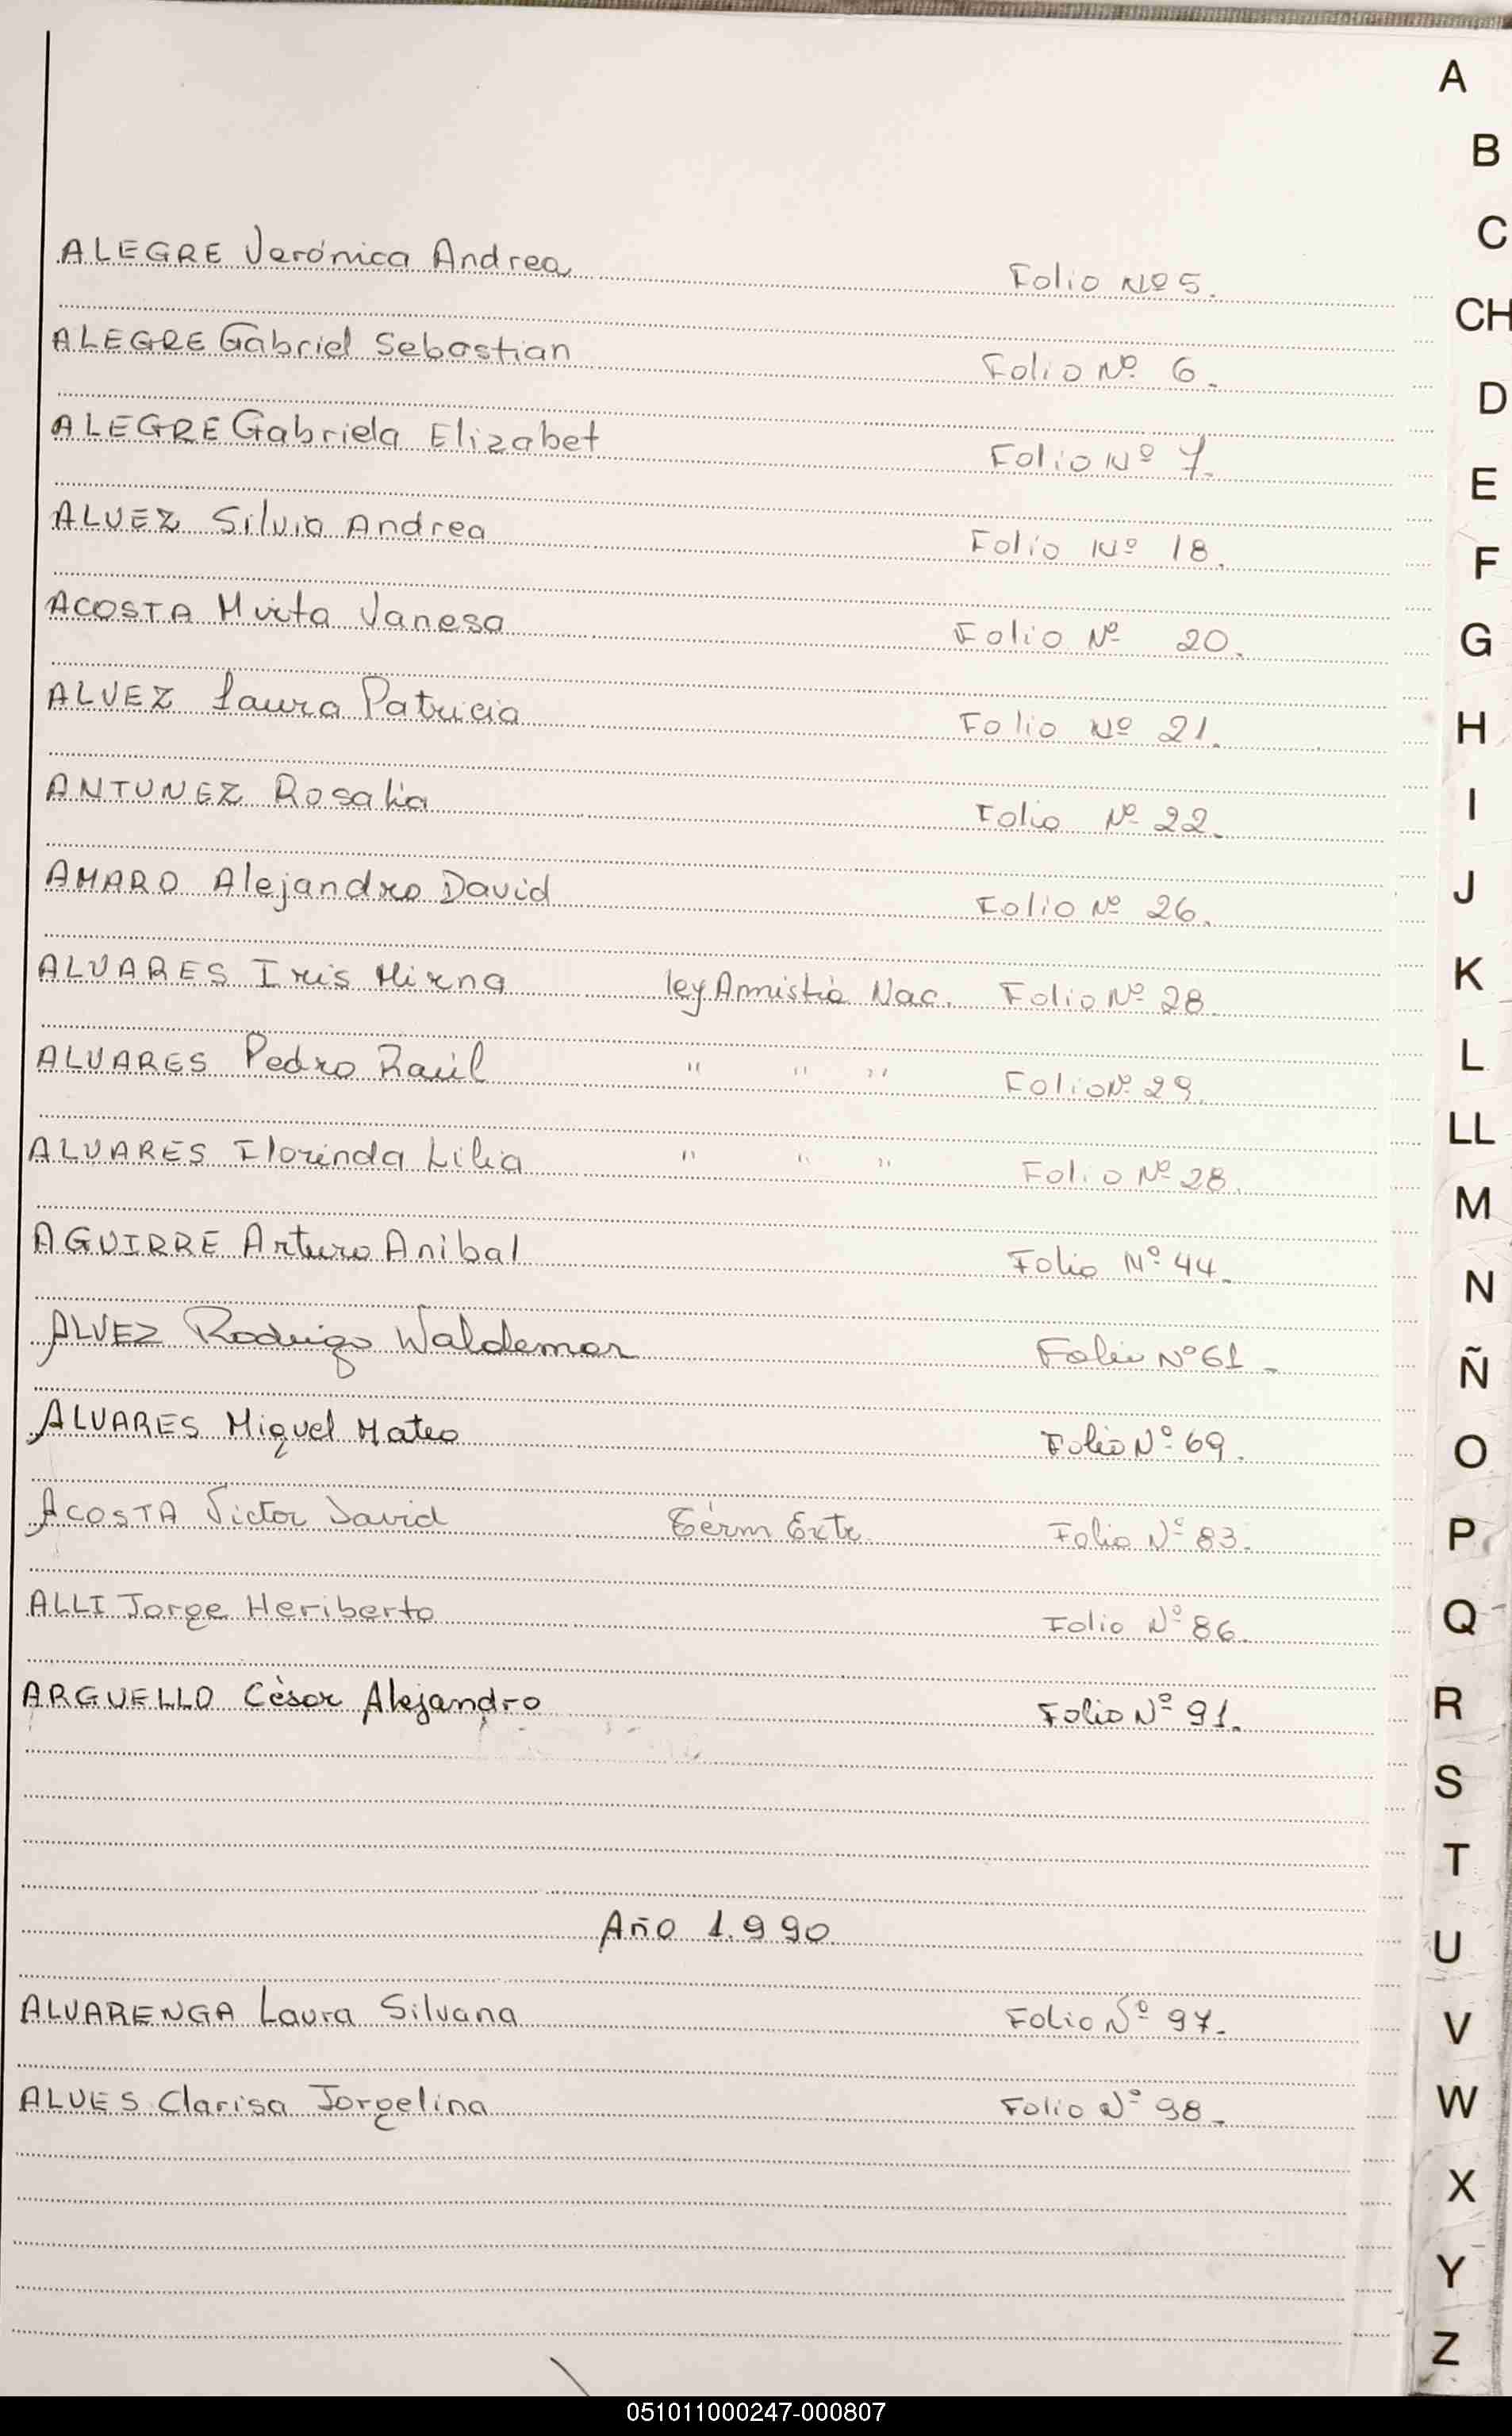 ALEGRE Verónica Andrea Folio Nº 5.
ALEGRE Gabriel Sebastian Folio Nº 6.
ALEGRE Gabriela Elizabet Folio Nº 7.
ALVEZ Silvia Andrea Folio Nº 18.
ACOSTA Mirta Vanesa Folio Nº 20.
ALVEZ Laura Patricia Folio Nº 21.
ANTUNEZ Rosalia Folio Nº 22.
AMARO Alejandro David Folio Nº 26.
ALVARES Iris Mirna ley Amnistia Nac. Folio Nº 28
ALVARES Pedro Raúl " " " Folio Nº 29.
ALVARES Florinda Lilia " " " Folio Nº 28.
AGUIRRE Arturo Anibal Folio Nº 44.
ALVEZ Rodrigo Waldemar Folio Nº 61.
ALVARES Miguel Mateo Folio Nº 69.
ACOSTA Victor David Térm Extr. Folio Nº 83.
ALLI Jorge Heriberto Folio Nº 86.
ARGUELLO Cèsar Alejandro Folio Nº 91.
Año 1.990
ALVARENGA Laura Silvana Folio Nº 97.
ALVES Clarisa Jorgelina Folio Nº 98.
A
B
C
CH
D
E
F
G
H
I
J
K
L
LL
M
N
Ñ
O
P
Q
R
S
T
U
V
W
X
Y
Z
051011000247-000807